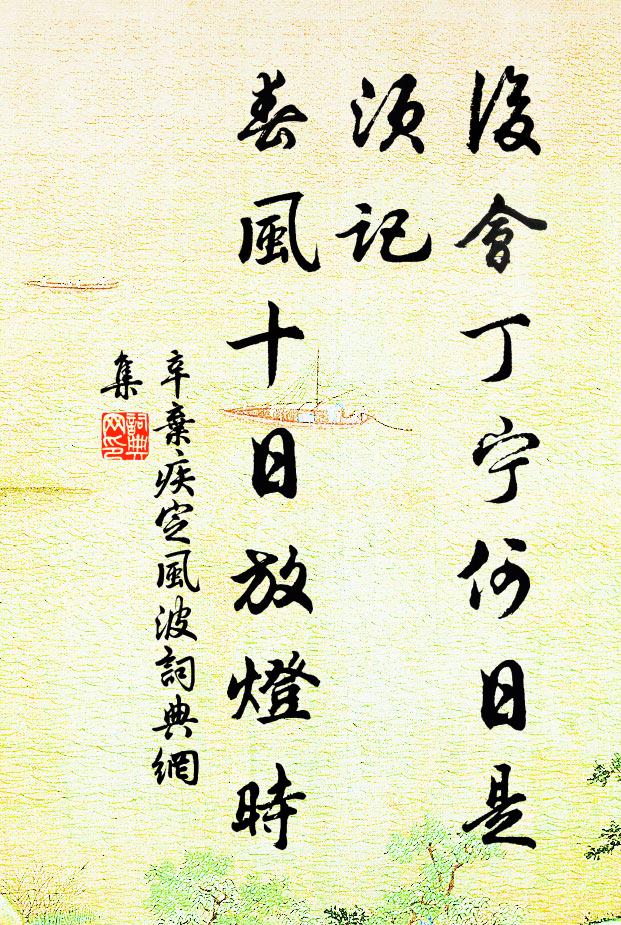 後會丁宁何日是
須記
春風十日放燈時
辛棄疾定風波詞典網
集
詞典
网印